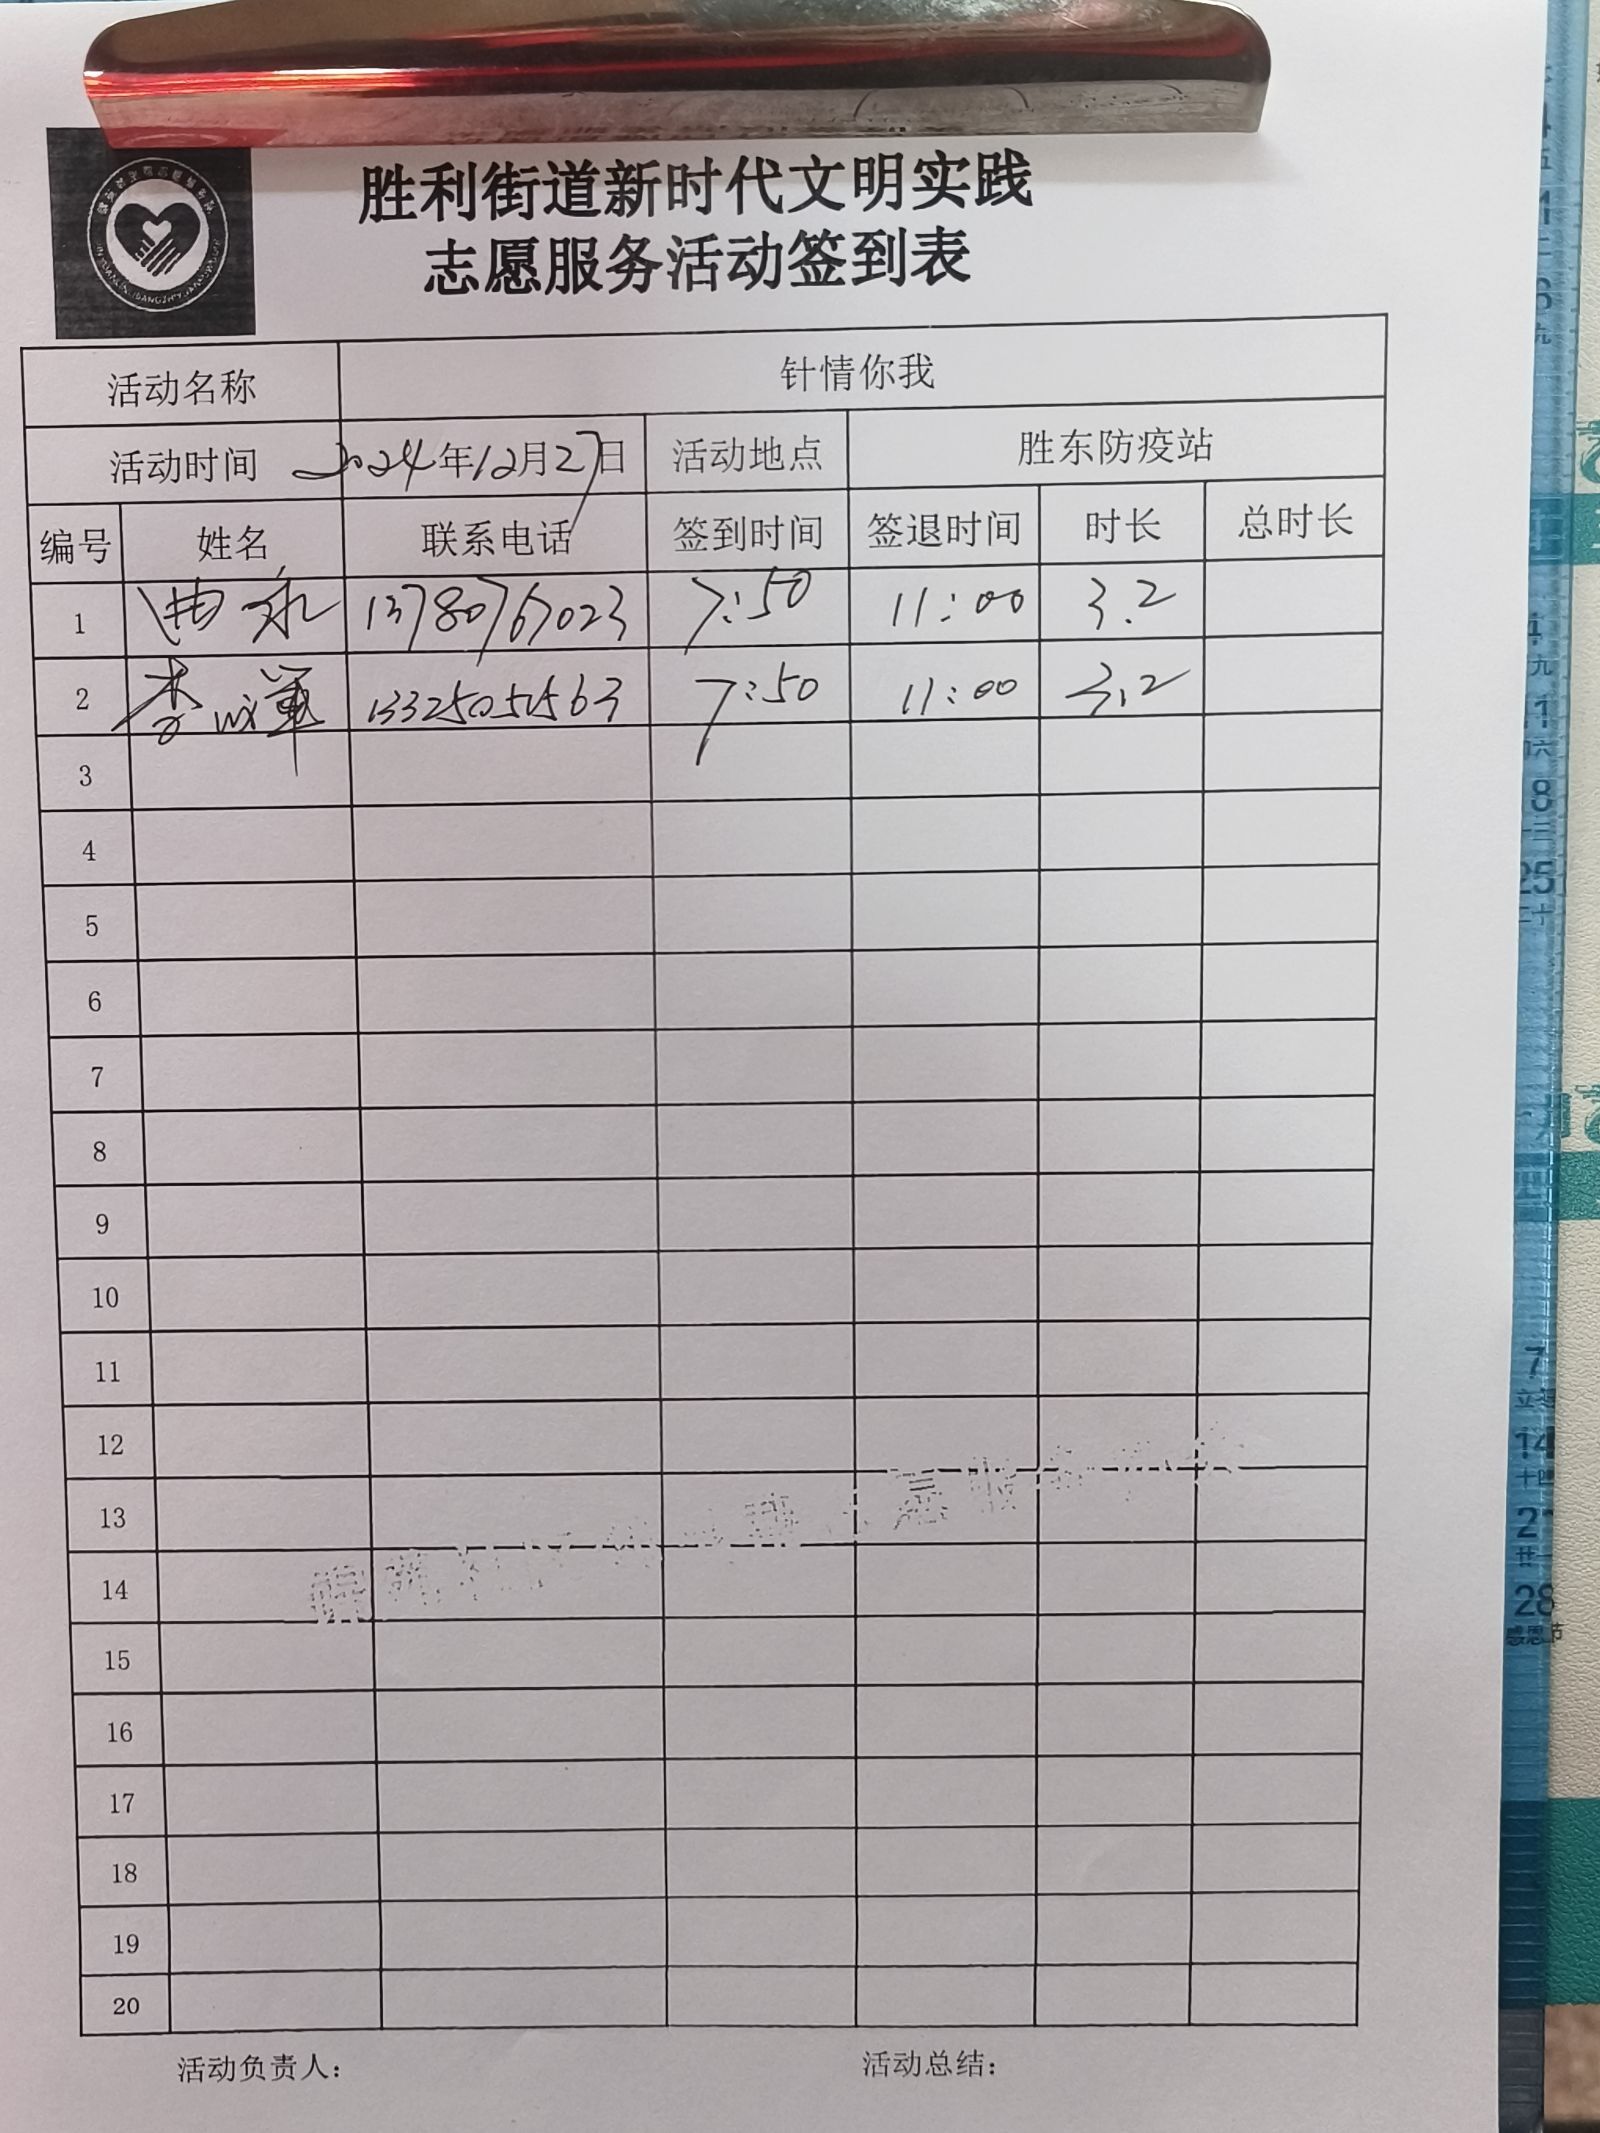 胜利街道新时代文明实践
志愿服务活动签到表
活动名称 针情你我
活动时间 2024年12月27日 活动地点 胜东防疫站
编号 姓名 联系电话 签到时间 签退时间 时长 总时长
1 曲永 13780767023 7:50 11:00 3.2
2 李 13325051563 7:50 11:00 3.2
3
4
5
6
7
8
9
10
11
12
13
14
15
16
17
18
19
20
活动负责人： 活动总结：
8
25
7
14
十四
21
廿一
28
感恩节